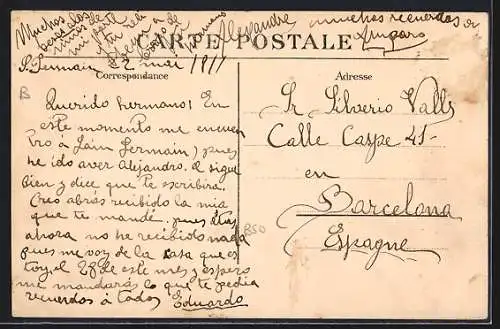 Muchos
besos a los
niños de
mi parte
y tu
hermano
Alexandre
muchos recuerdos de
CARTE POSTALE
St Germain 2 mai 1911
Correspondance
Adresse
Querido hermano! En
este momento me encuen
tro à Sain Germain) pues
he ido aver Alejandro. el sigue
bien y dice que te escribira.
Creo abrás recibido la mia
que te mandé. pues
ahora no he recibido nada
pues me voy de la casa que es
toy, el 28 de este mes y espero
me mandarás lo que te pedia
recuerdos à todos Eduardo
Sr Silverio Valls
Calle Caspe 41-
en
Barcelona
Espagne
B
B50